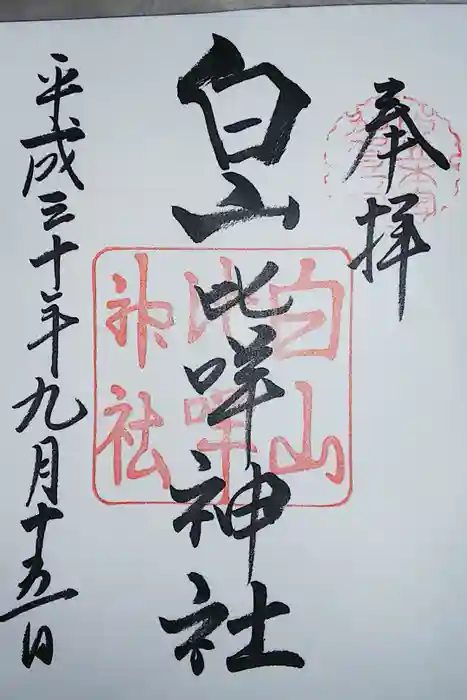 奉拝
白山比咩神社
白山
比咩
神社
平成三十年九月十五日